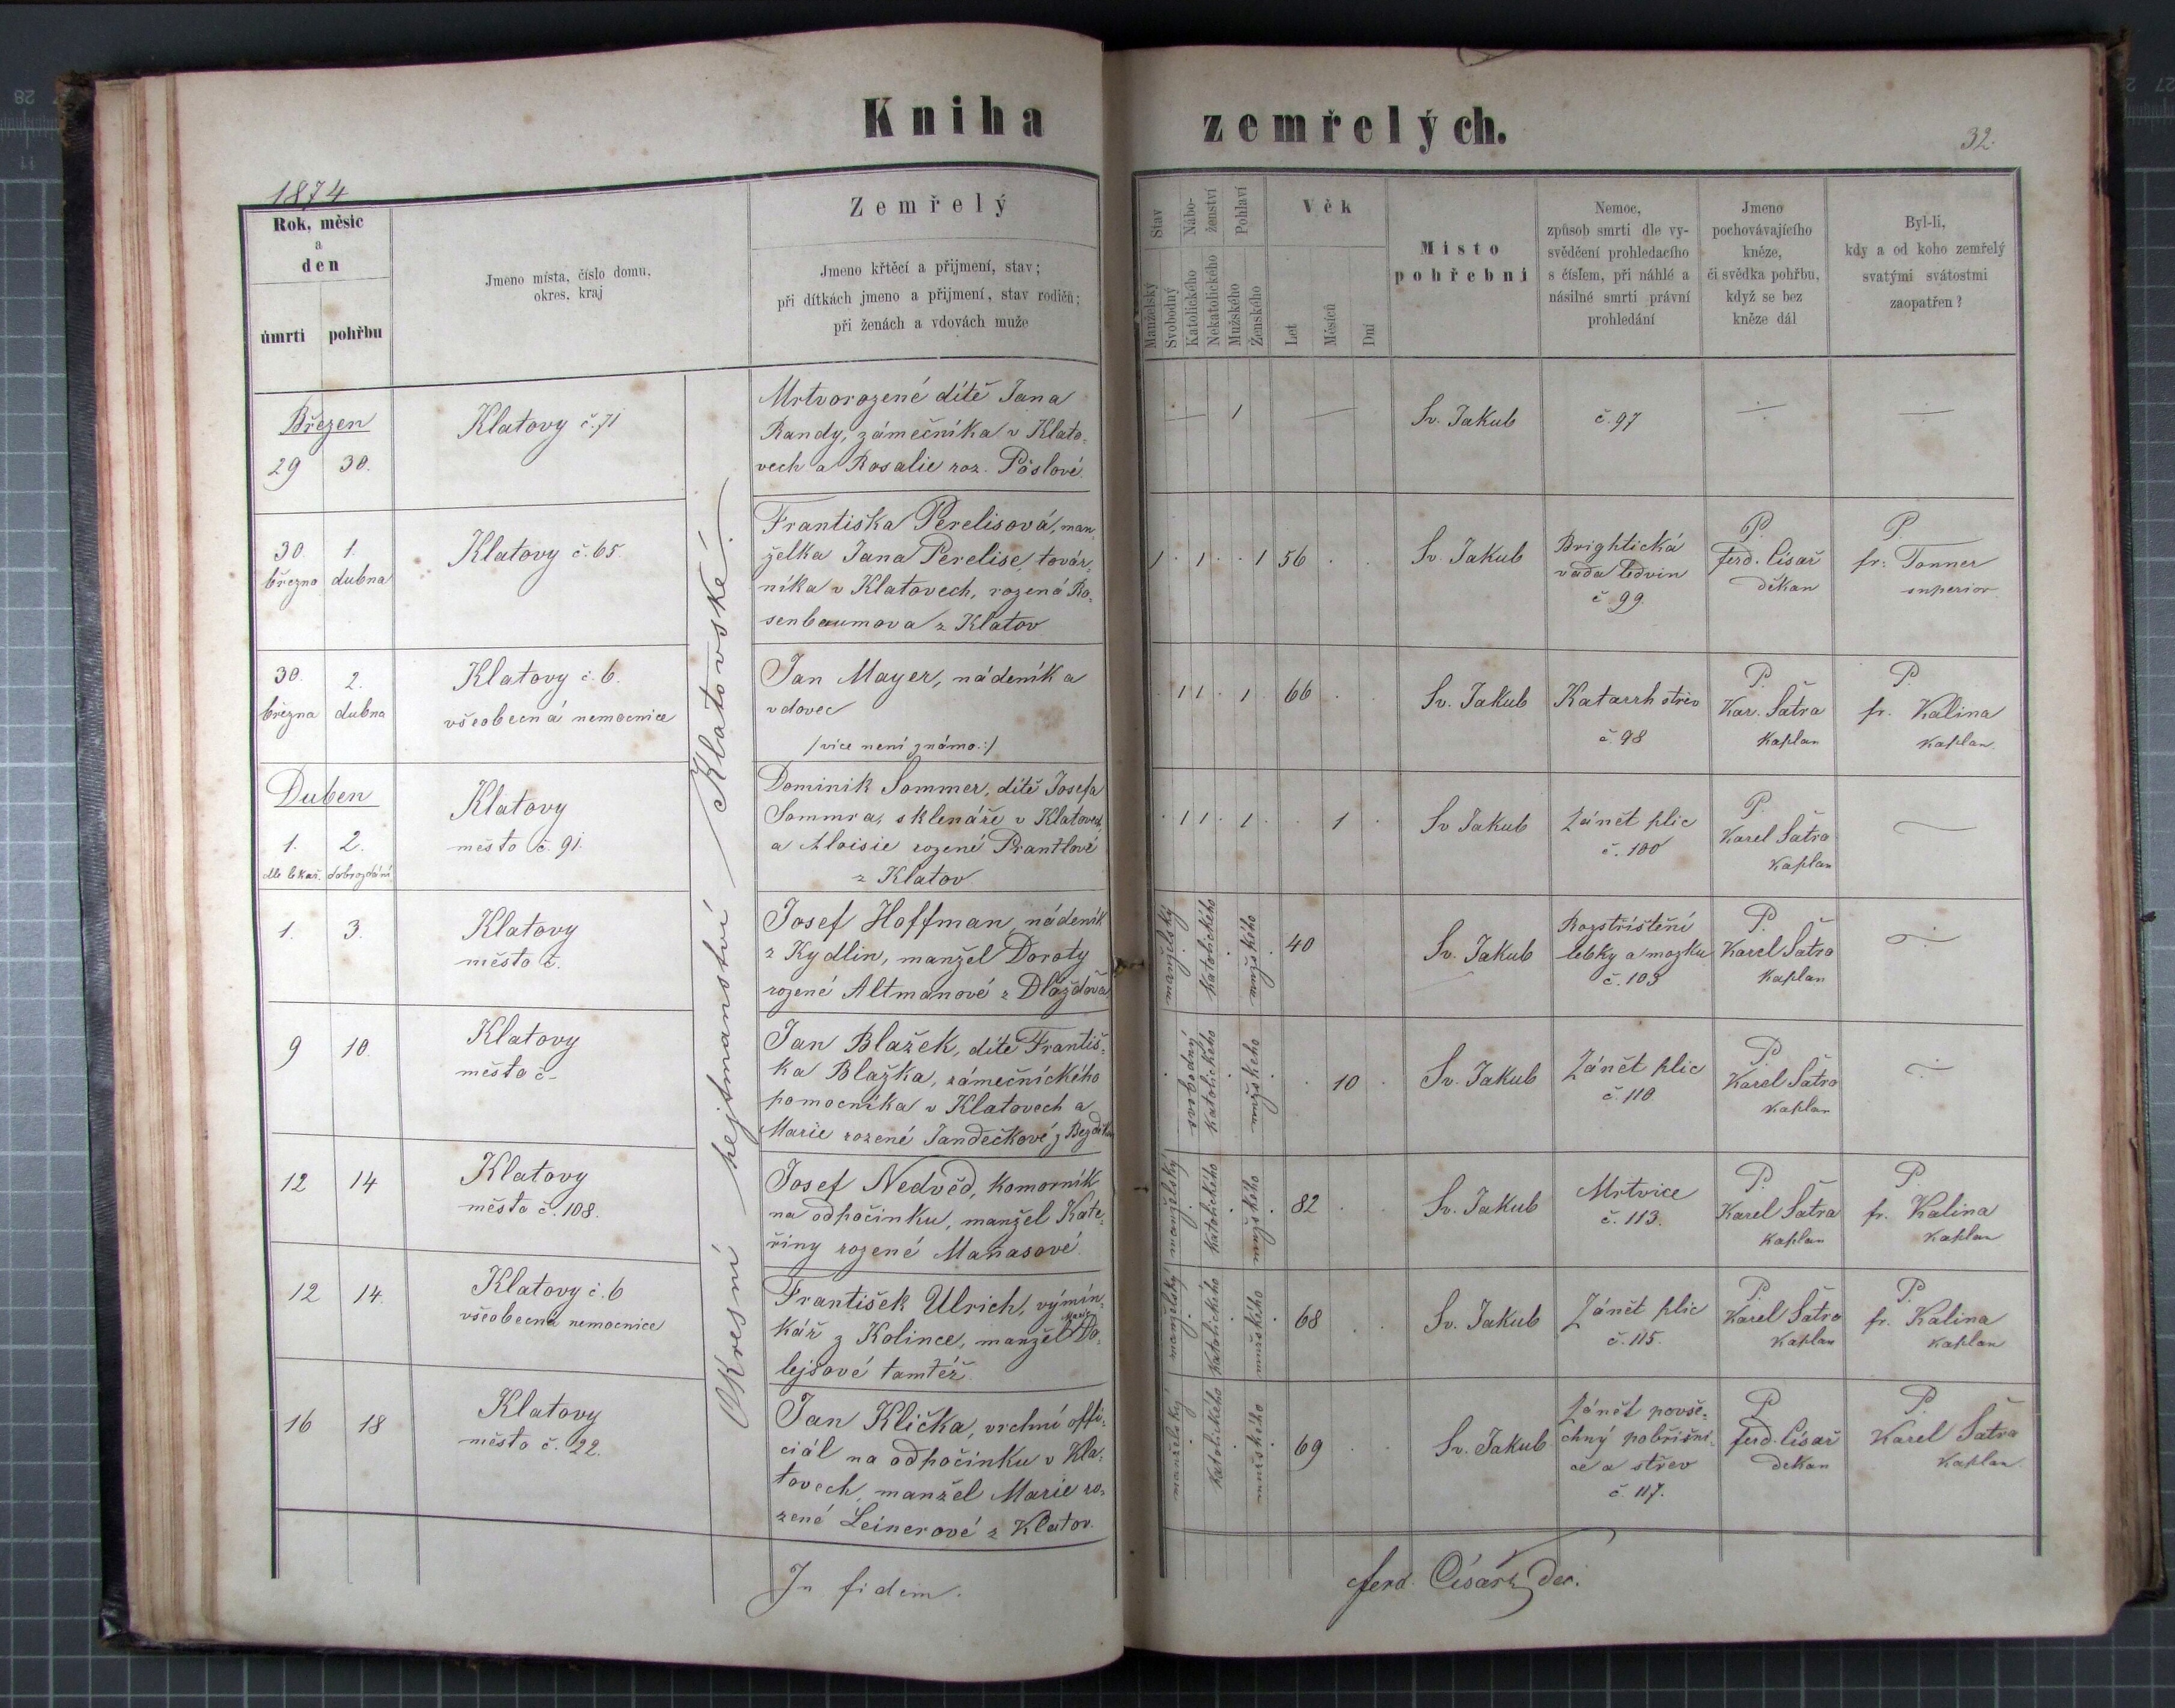 Kniha zemřelých.
32.
1874
Rok, měsíc
a
den
úmrtí pohřbu
Jmeno místa, číslo domu,
okres, kraj
Zemřelý
Jmeno křtěcí a přijmení, stav;
při dítkách jmeno a přijmení, stav rodičů;
při ženách a vdovách muže
Stav
Manželský
Svobodný
Nábo-
ženství
Katolického
Nekatolického
Pohlaví
Mužského
Ženského
Věk
Let
Měsíců
Dní
Místo
pohřební
Nemoc,
způsob smrti dle vy-
svědčení prohledacího
s číslem, při náhlé a
násilné smrti právní
prohledání
Jmeno
pochovávajícího
kněze,
či svědka pohřbu,
když se bez
kněze dál
Byl-li,
kdy a od koho zemřelý
svatými svátostmi
zaopatřen?
Okresní hejtmanství Klatovské.
Březen
29 30.
Klatovy č. 71
Mrtvorozené dítě Jana
Randy, zámečníka v Klato-
vech a Rosalie roz. Pöslové.
— 1 —
Sv. Jakub
č. 97
— —
30. 1.
března dubna
Klatovy č. 65.
Františka Perelisová, man-
želka Jana Perelise, továr-
níka v Klatovech, rozená Ro-
senbaumova z Klatov
1 . 1 . . 1 56 . .
Sv. Jakub
Brightická
vada ledvin
č 99.
P.
Ferd. Císař
děkan
P.
fr. Tonner
superior
30. 2.
března dubna
Klatovy č. 6.
všeobecná nemocnice
Jan Mayer, nádeník a
vdovec
/více není známo:/
. 1 1 . 1 . 66 . .
Sv. Jakub
Katarrh střev
č. 98
P.
Kar. Šatra
Kaplan
P.
fr. Kalina
Kaplan.
Duben
1. 2.
dle lékař. dobrozdání
Klatovy
město č. 91.
Dominik Sommer, dítě Josefa
Sommra, sklenáře v Klatovech
a Aloisie rozené Prantlové
z Klatov
. 1 1 . 1 . . 1 .
Sv Jakub
Zánět plic
č. 100
P.
Karel Šatra
Kaplan
—
1. 3.
Klatovy
město č.
Josef Hoffman nádeník
z Kydlin, manžel Doroty
rozené Altmanové z Dlažďova
manželský . katolického . mužského . 40
Sv. Jakub
Rozstříštění
lebky a mozku
č. 103
P.
Karel Šatra
Kaplan
9 10.
Klatovy
město č-
Jan Blažek, dítě Františ-
ka Blažka, zámečníckého
pomocníka v Klatovech a
Marie rozené Jandečkové z
. svobodný katolického . mužského . . 10 .
Sv. Jakub
Zánět plic
č. 110
P.
Karel Šatra
Kaplan
12 14
Klatovy
město č. 108.
Josef Nedvěd, komorník
na odpočinku, manžel Kate-
řiny rozené Maňasové.
manželský . katolického . mužského . 82 . .
Sv. Jakub
Mrtvice
č. 113.
P.
Karel Šatra
Kaplan
P.
fr. Kalina
Kaplan
12 14.
Klatovy č. 6
všeobecná nemocnice
František Ulrich, výmin-
Marie
kář z Kolince, manžel Do-
lejšové tamtéž.
manželský . katolického . mužského . 68 . .
Sv. Jakub
Zánět plic
č. 115.
P.
Karel Šatra
Kaplan
P.
fr. Kalina
Kaplan
16 18
Klatovy
město č. 22.
Jan Klička, vrchní offi-
ciál na odpočinku v Kla-
tovech, manžel Marie ro-
zené Leinerové z Klatov.
manželský . katolického . mužského . 69 . .
Sv. Jakub
Zánět povše-
chný pobřišni-
ce a střev
č. 117.
P.
Ferd. Císař
děkan
P.
Karel Šatra
Kaplan.
In fidem.
Ferd. Císař